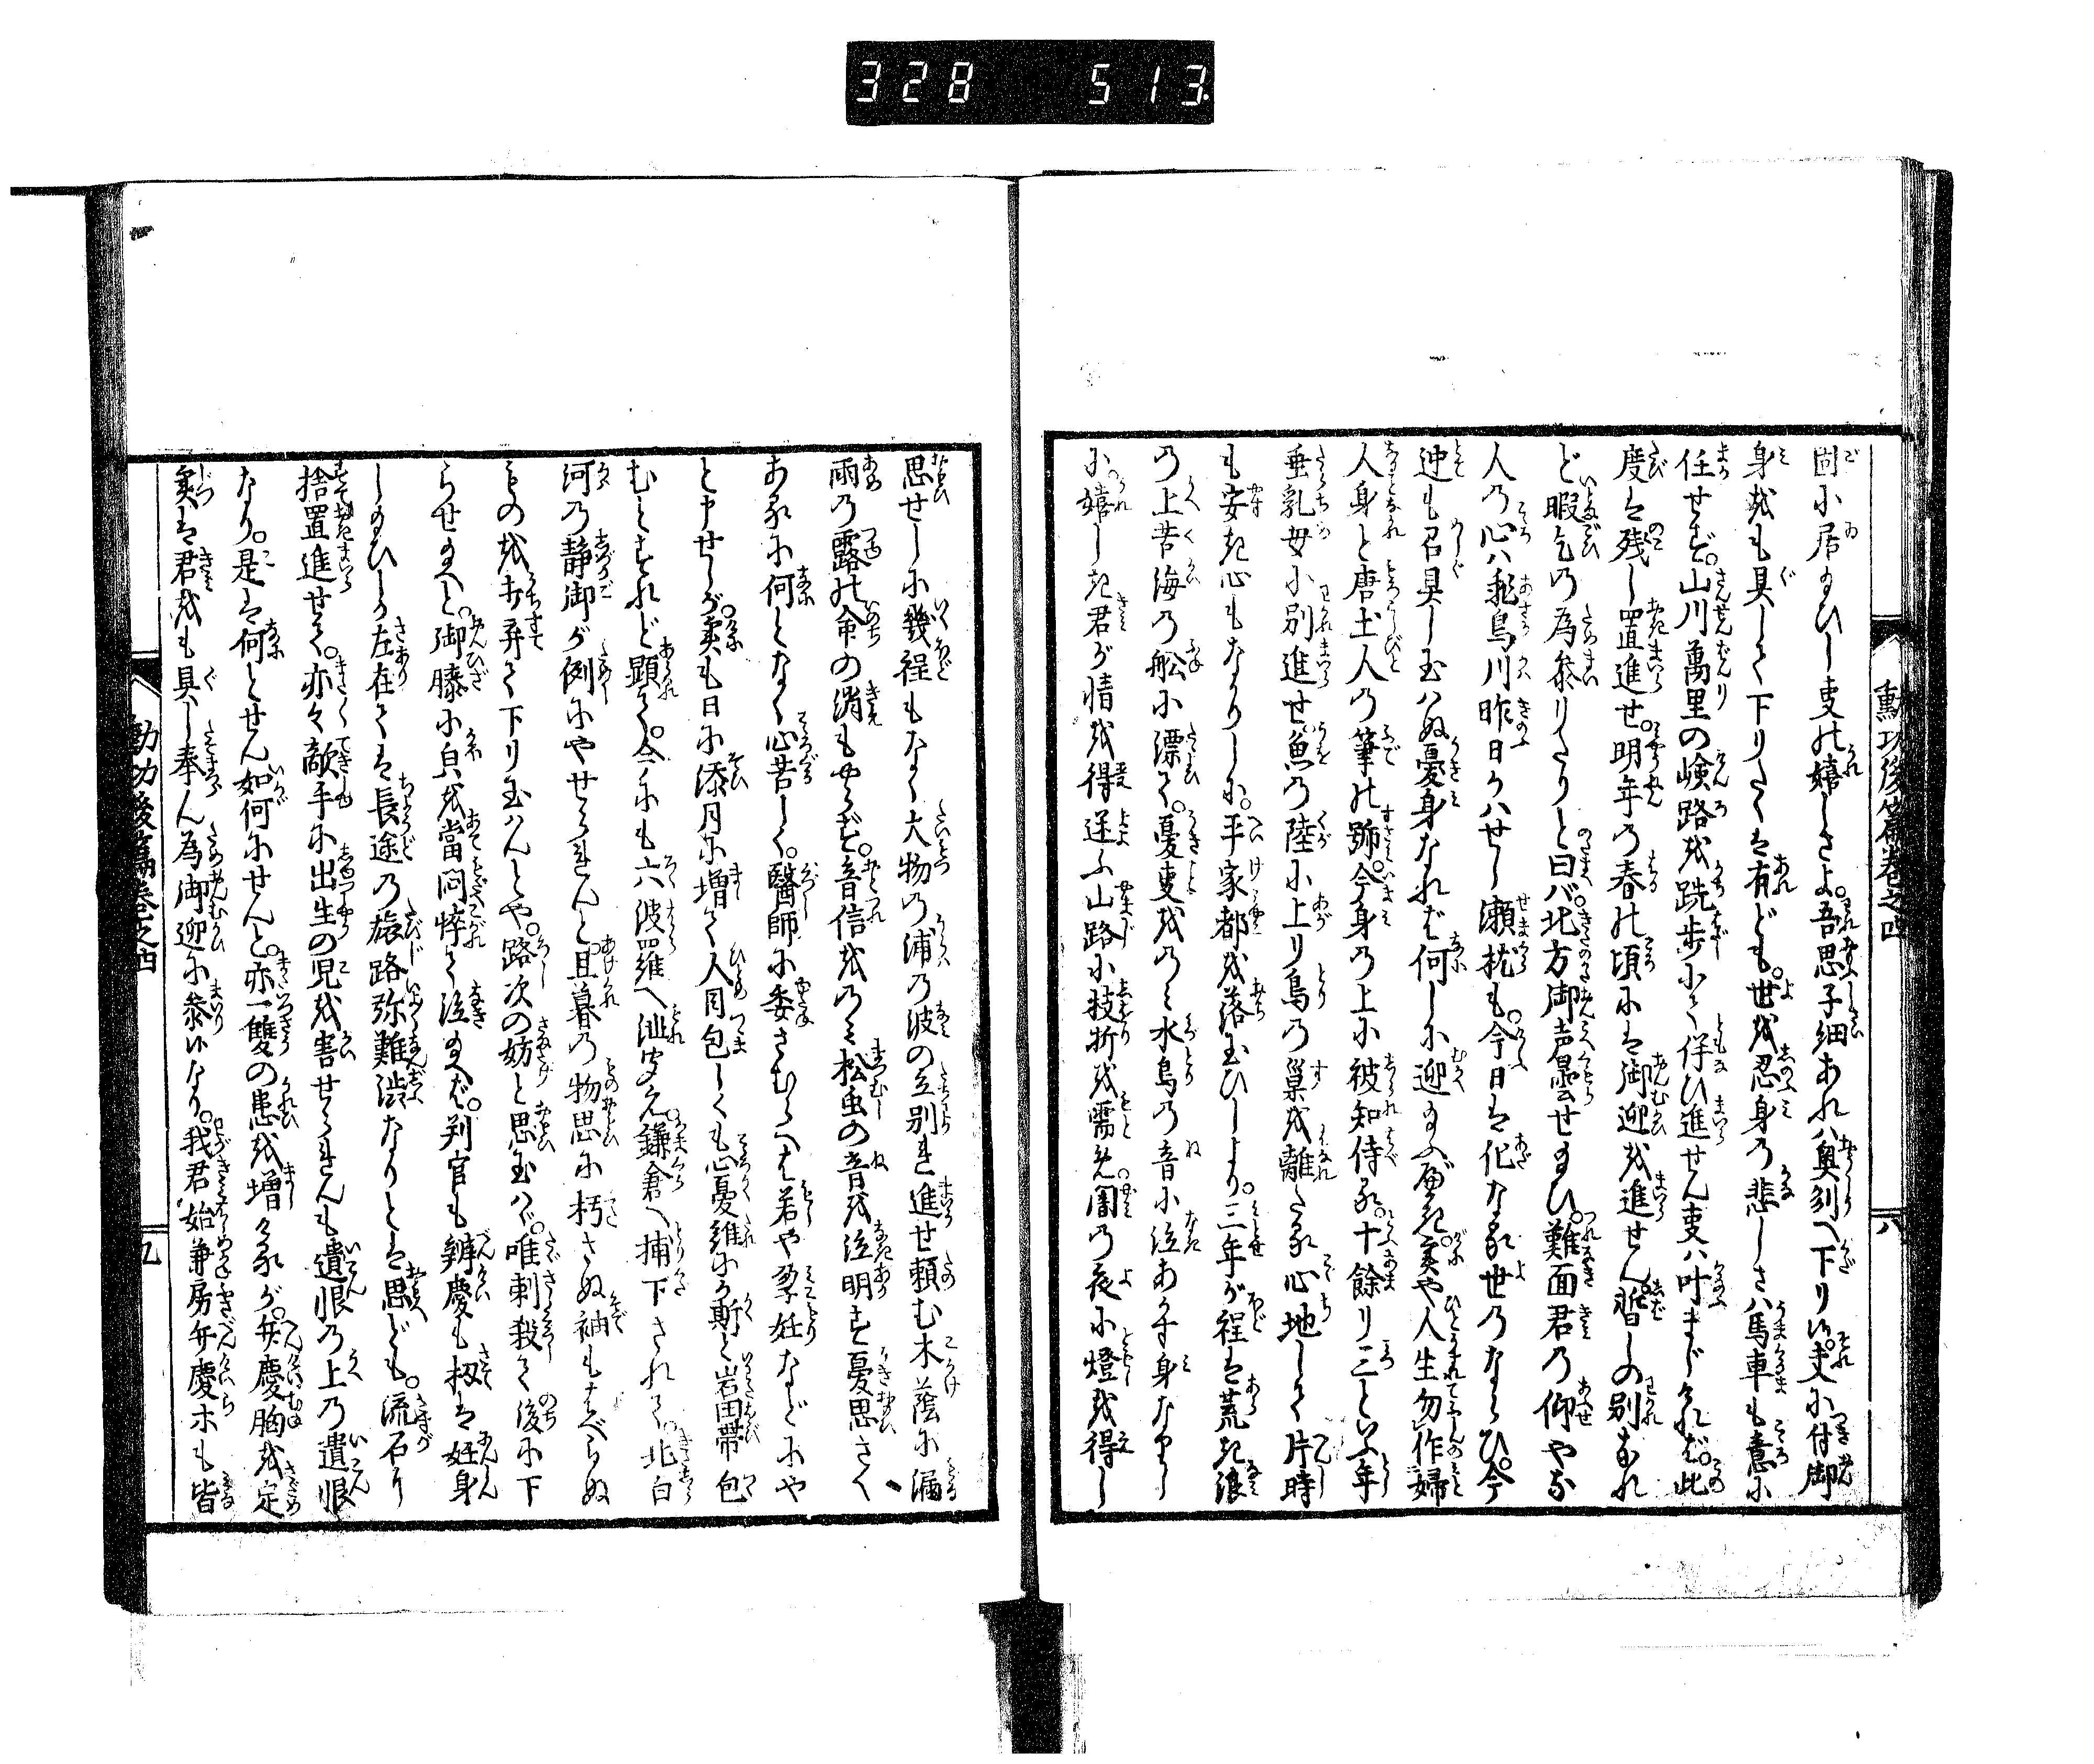 328 513
勲功後篇巻之四 八
固に居給ひし事の嬉しさよ。吾思子細あれハ奥刕へ下り候。夫に付御
身をも具して下りたくは有ども。世を忍身の悲しさハ馬車も意に
任せず。山川萬里の嶮路を跣歩にて伴ひ進せん事ハ叶まじければ。此
度は残し置進せ。明年の春の頃には御迎を進せん暫しの別なれ
ど暇乞の為参りたりと曰バ。北方御声曇せ給ひ。難面君の仰やな
人の心ハ飛鳥川昨日かハせし瀬枕も。今日は化なる世のならひ。今
迚も召具し玉ハぬ憂身なれば何しに迎給ふべき。実や人生勿作婦
人身と唐土人の筆の跡。今身の上に被知侍る。十餘り三といふ年
垂乳母に別進せ魚の陸に上り鳥の巣を離たる心地して片時
も安き心もなかりしに。平家都を落玉ひしより。三年が程は荒き浪
の上苦海の舩に漂て。憂事をのミ水鳥の音に泣あかす身なりし
に嬉しき君が情を得迷ふ山路に枝折を需め闇の夜に燈を得し
思せしに幾程もなく大物の浦の波の立別れ進せ頼む木蔭に漏
雨の露の命の消もやらず。音信をのミ松虫の音を泣明す憂思さへ
あるに何となく心苦しく。醫師に委さむらへば若や孕妊などにや
と申せしが。実も日に添月に増て人目包しくも心憂雑にか斯と岩田帯包
むとすれど顕て。今にも六波羅へ洩聞え。鎌倉へ捕下されて。北白
河の静御が例にやせられんと旦暮の物思に朽さぬ袖もはべらぬ
ものを打弃て下り玉はんとや。路次の妨と思玉ハゞ。唯刺殺て後に下
らせ給へと。御膝に貞を當悶悴て泣給へば。判官も辨慶も扨は妊身
し給ひしか左在ては長途の旅路弥難渋なりとは思ども。流石に
捨置進せて。亦々敵手に出生の児を害せられんも遺恨の上の遺恨
なり。是は何とせん如何にせんと。亦一雙の患を増けるが。弁慶胸を定
実は君をも具し奉ん為御迎に参候なり。我君始兼房弁慶ホも皆
勲功後篇巻之四 九